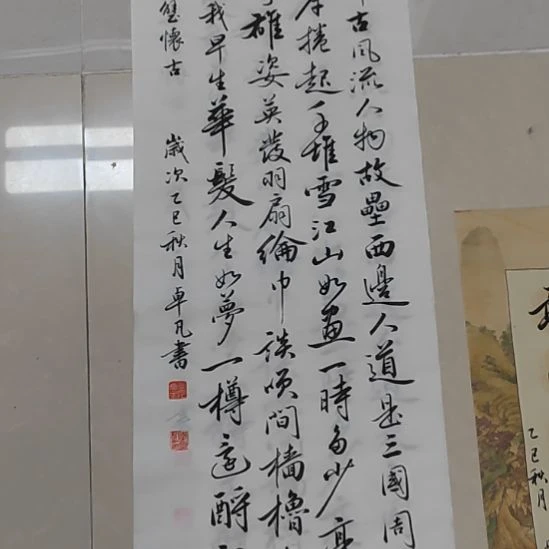 古風流人物故壘西邊人道是三國周
捲起千堆雪江山如畫一時多少豪
雄姿英發羽扇綸巾談笑間檣櫓
我早生華髮人生如夢一樽還酹
壁懷古 歲次乙巳秋月卓凡書
乙巳秋月